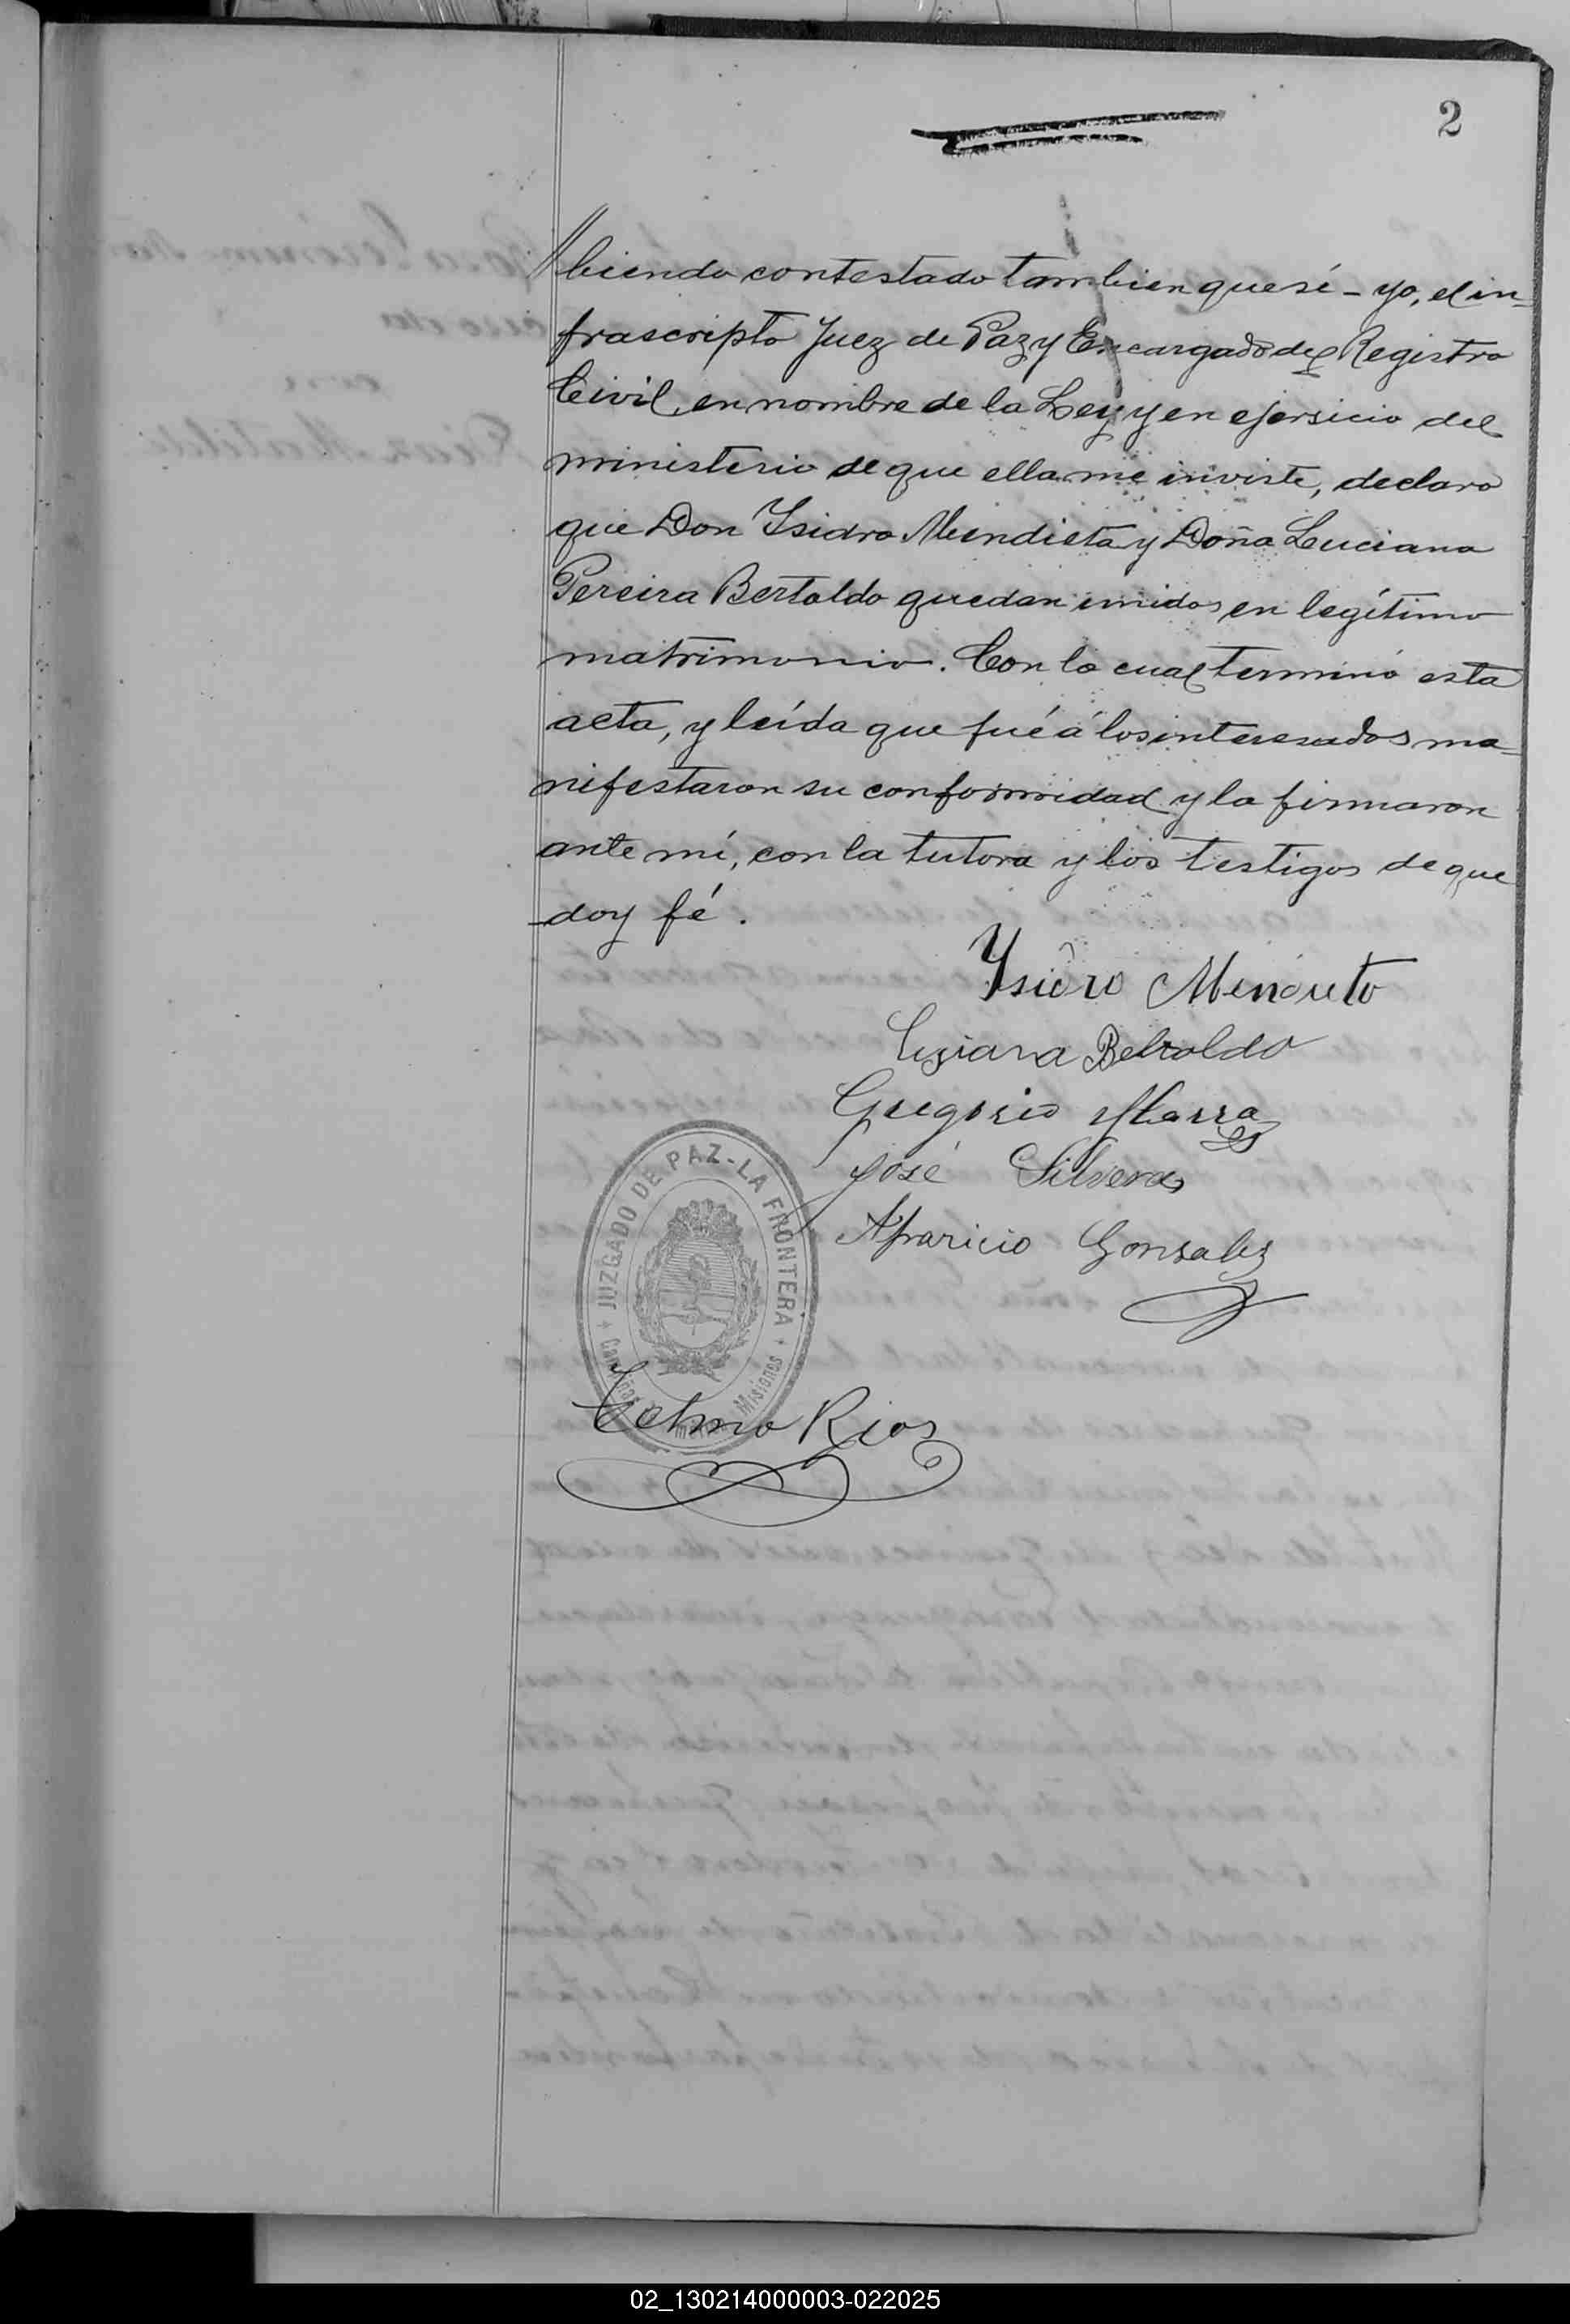 2
biendo contestado tambien que sí - yo, el in-
frascripto Juez de Paz y Encargado del Registro
Civil, en nombre de la Ley y en ejersicio del
ministerio de que ella me inviste, declaro
que Don Isidro Mendieta y Doña Luciana
Pereira Bertoldo quedan unidos en legítimo
matrimonio. Con lo cual terminó esta
acta, y leída que fué á los interesados ma-
nifestaron su conformidad y la firmaron
ante mí, con la tutora y los testigos de que
doy fé.
Ysidro Mendieto
Lusiana Beltoldo
Gregorio Ybarra
José Silvera
Aparicio Gonsalez
JUZGADO DE PAZ - LA FRONTERA
Misiones
Telmo Rios
02_130214000003-022025